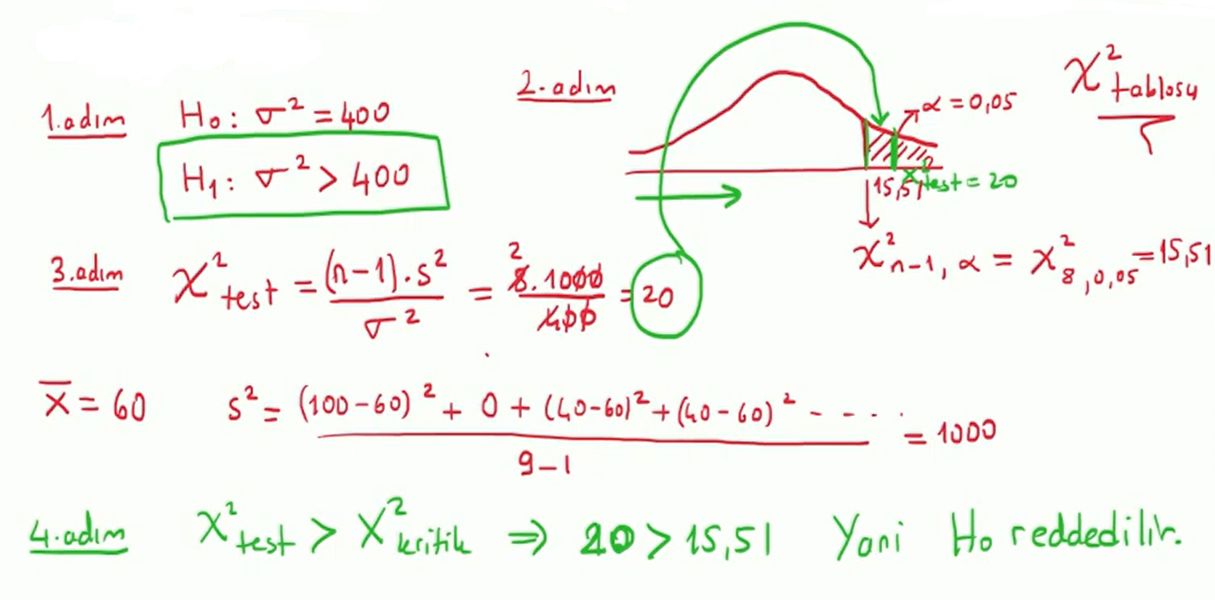 1.adım H₀: σ² = 400
H₁: σ² > 400
2.adım
α = 0,05
χ² tablosu
15,51
χ²test = 20
χ²n-1, α = χ²8, 0,05 = 15,51
3.adım χ²test = (n-1).s² / σ² = 8.1000 / 400 = 20
2
x̄ = 60 s² = (100-60)² + 0 + (40-60)² + (40-60)² - - - · · / 9-1 = 1000
4.adım χ²test > χ²kritik ⇒ 20 > 15,51 Yani H₀ reddedilir.